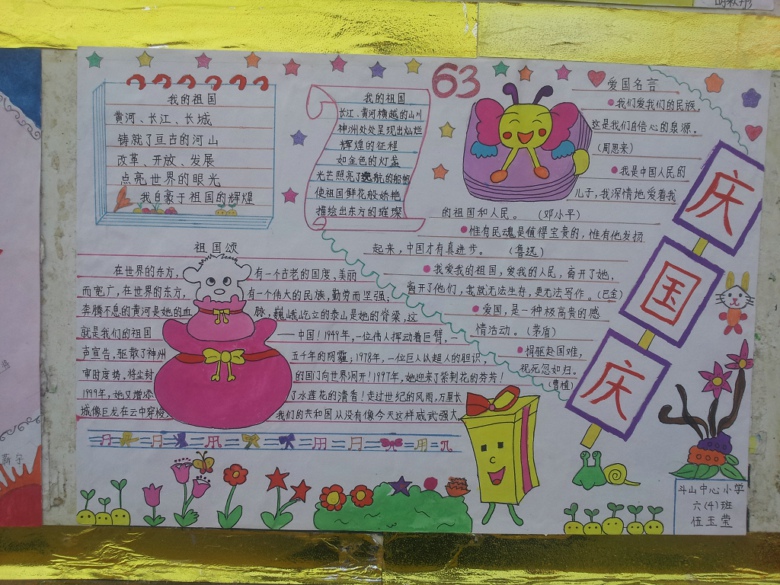 63
我的祖国
黄河、长江、长城
铸就了亘古的河山
改革、开放、发展
点亮世界的眼光
我自豪于祖国的辉煌
我的祖国
长江、黄河横越的山川
神州处处呈现出灿烂
辉煌的征程
如金色的灯盏
光芒照亮了 航的船帆
使祖国鲜花般娇艳
描绘出东方的璀璨
爱国名言
我们爱我们的民族,
这是我们自信心的泉源。
(周恩来)
我是中国人民的
儿子,我深情地爱着我
的祖国和人民。(邓小平)
惟有民魂是值得宝贵的,惟有他发扬
起来,中国才有真进步。(鲁迅)
我爱我的祖国,爱我的人民,离开了她,
离开了他们,我就无法生存,更无法写作。(巴金)
爱国,是一种极高贵的感
情活动。(茅盾)
捐躯赴国难,
视死忽如归。
(曹植)
庆
国
庆
祖国颂
在世界的东方,有一个古老的国度,美丽
而宽广,在世界的东方,有一个伟大的民族,勤劳而坚强,
奔腾不息的黄河是她的血脉,巍峨屹立的泰山是她的脊梁,这
就是我们的祖国——中国!1949年,一位伟人挥动着巨臂,一
声宣告,驱散了神州五千年的阴霾,1978年,一位巨人以超人的胆识,
审时度势,将尘封的国门向世界洞开!1997年,她迎来了紫荆花的芬芳!
1999年,她又增添了水莲花的清香!走过世纪的风雨,万里长
城像巨龙在云中穿梭,我们的共和国从没有像今天这样威武强大。
斗山中心小学
六(4)班
伍玉莹